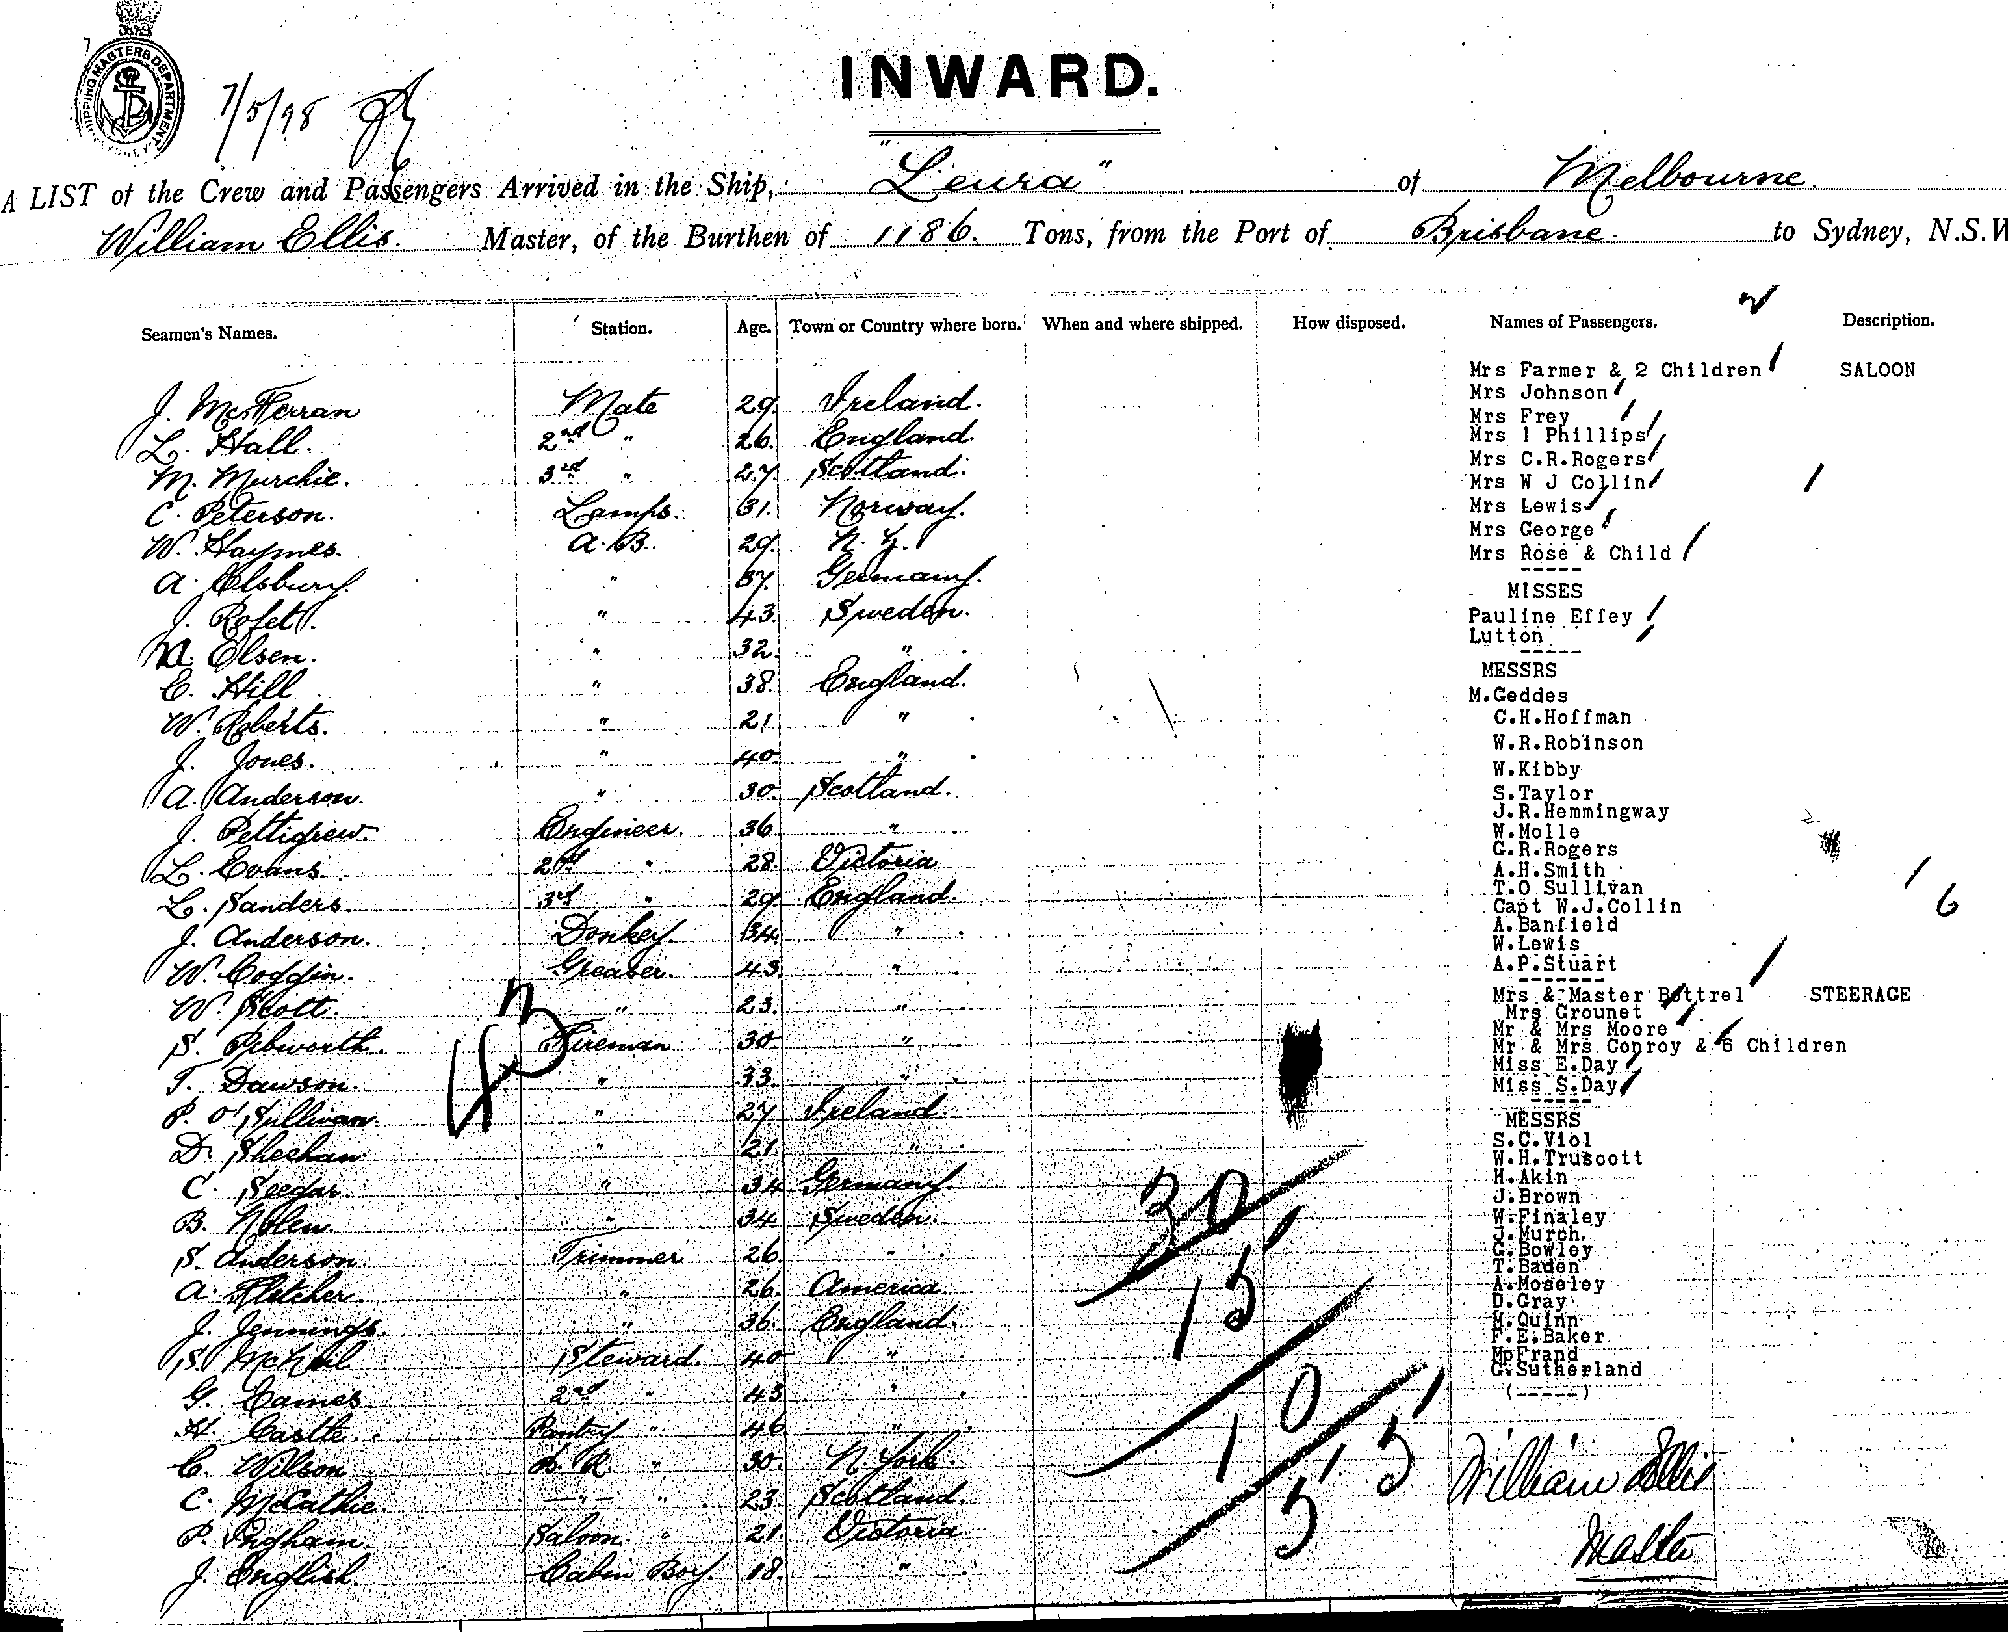 SHIPPING MASTERS DEPARTMENT
7/5/98
INWARD.
A LIST of the Crew and Passengers Arrived in the Ship, "Leura" of Melbourne.
William Ellis. Master, of the Burthen of 1186. Tons, from the Port of Brisbane. to Sydney, N.S.W
Seamen's Names. Station. Age. Town or Country where born. When and where shipped. How disposed. Names of Passengers. Description.
J. McFerran Mate 29. Ireland.
L. Hall. 2nd " 26. England.
M. Murchie. 3rd " 27. Scotland.
C. Peterson. Lamps. 31. Norway.
W. Haymes. A.B. 29. N.Z.
A. Elsbury. " 37. Germany.
J. Rofet. " 43. Sweden.
N. Elsen. " 32. "
C. Hill " 38. England.
W. Roberts. " 21. "
J. Jones. " 40. "
A. Anderson. " 30. Scotland.
J. Pettigrew. Engineer. 36. "
L. Evans. 2nd " 28. Victoria
L. Sanders. 3rd " 29. England.
J. Anderson. Donkey. 34. "
W. Coggin. Greaser. 43. "
W. Scott. " 23. "
S. Pebworth. Fireman 30. "
T. Dawson. " 33. "
P. O'Sullivan. " 27. Ireland
D. Sheehan " 21. "
C. Seegar. " 34 Germany.
B. Nolen. " 34. Sweden.
S. Anderson. Trimmer 26. "
A. Fletcher. " 26. America
J. Jennings. " 36. England.
S. McNeil Steward. 40 "
G. Eames. 2nd " 43 "
H. Castle. Pantry " 46. "
C. Wilson " 30. N. York.
C. McCathie. " " 23. Scotland.
P. Ingham. Saloon " 21. Victoria
J. English. Cabin Boy 18. "
Mrs Farmer & 2 Children SALOON
Mrs Johnson
Mrs Frey
Mrs l Phillips
Mrs C.R.Rogers
Mrs W J Collin
Mrs Lewis
Mrs George
Mrs Rose & Child
-----
MISSES
Pauline Effey
Lutton
-----
MESSRS
M.Geddes
C.H.Hoffman
W.R.Robinson
W.Kibby
S.Taylor
J.R.Hemmingway
W.Molle
G.R.Rogers
A.H.Smith
T.O Sullivan
Capt W.J.Collin
A.Banfield
W.Lewis
A.P.Stuart
-------
Mrs & Master Bottrel STEERAGE
Mrs Grounet
Mr & Mrs Moore
Mr & Mrs Conroy & 6 Children
Miss E.Day
Miss S.Day
-----
MESSRS
S.C.Viol
W.H.Truscott
H.Akin
J.Brown
W.Finaley
J.Murch.
G.Bowley
T.Baden
A.Moseley
D.Gray
M.Quinn
F.E.Baker
McFrand
G.Sutherland
(-----)
6
43
30
15
10
5
5
William Ellis
Master